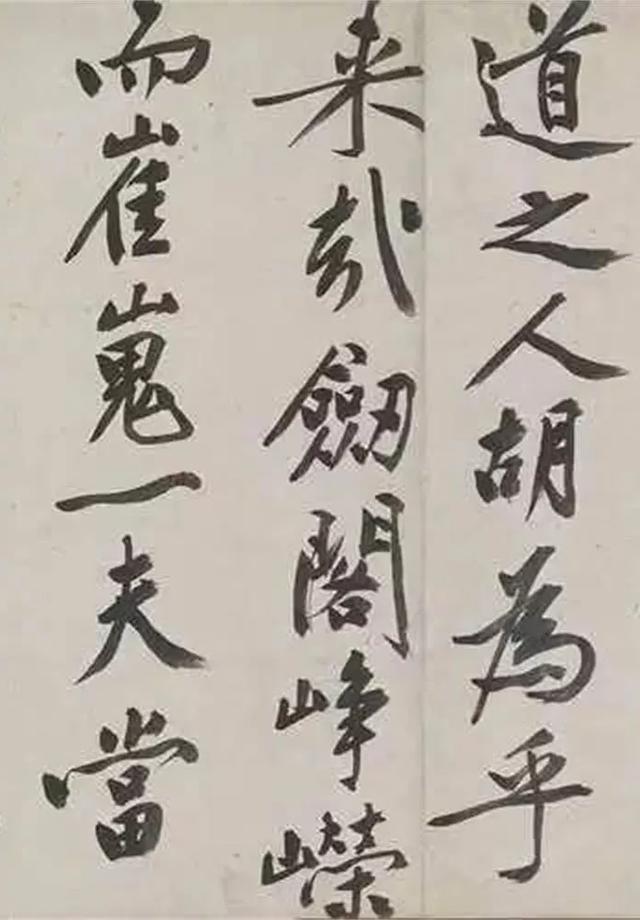 道之人胡為乎
来哉劒閣崢嶸
而崔嵬一夫當